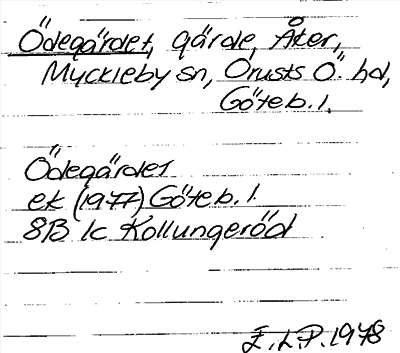 Ödegärdet, gärde, Åker,
Myckleby sn, Orusts Ö. hd,
Göteb. l.
Ödegärdet
ek (1977) Göteb. l.
8B 1c Kollungeröd
E.L.P. 1978